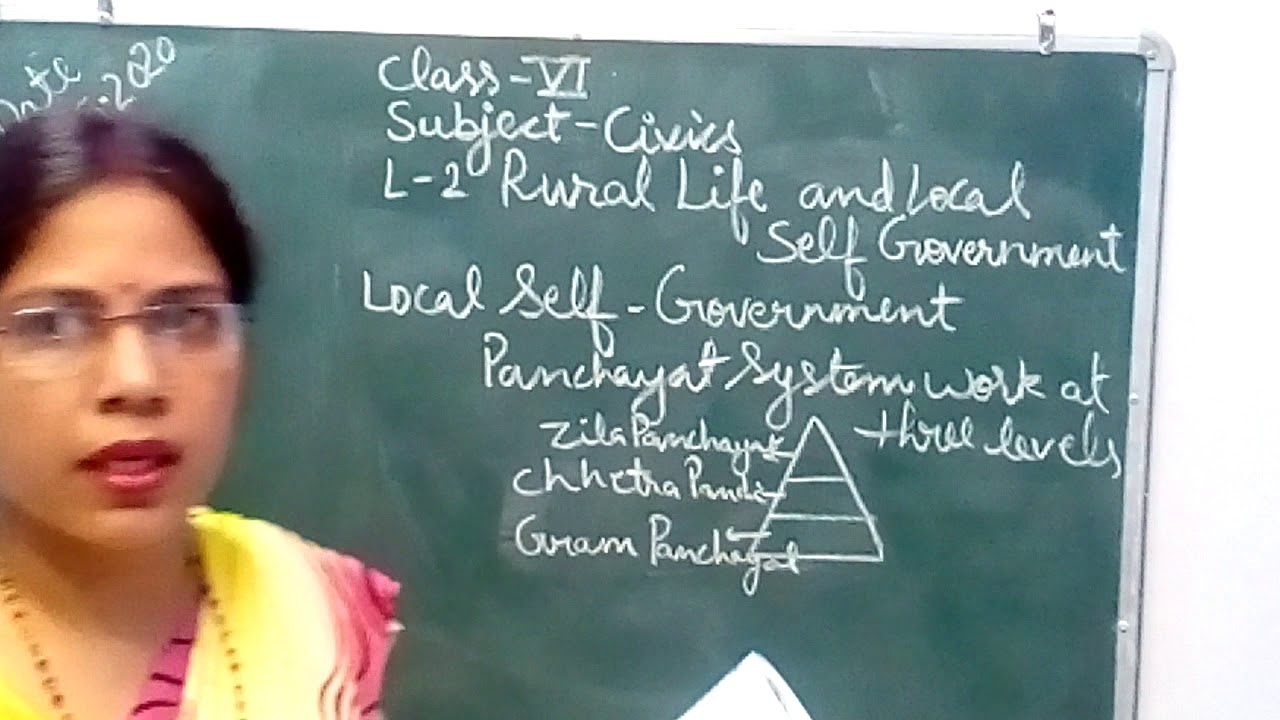 Date
2020
Class-VI
Subject-Civics
L-2 Rural Life and Local
Self Government
Local Self-Government
Panchayat System work at
three levels
Zila Panchayat
Chhetra
Gram Panchayat